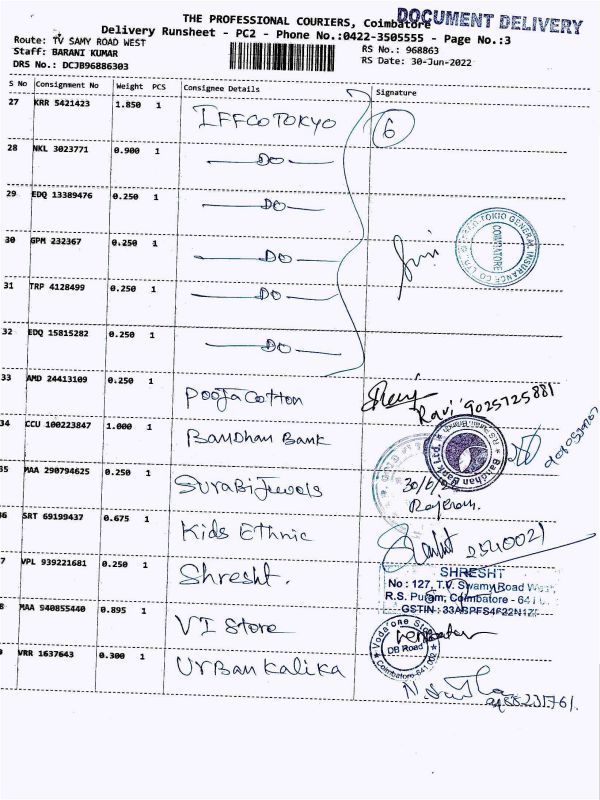 THE PROFESSIONAL COURIERS, Coimbatore
DOCUMENT DELIVERY
Delivery Runsheet - PC2 - Phone No.:0422-3505555 - Page No.:3
Route: TV SAMY ROAD WEST
RS No.: 968863
Staff: BARANI KUMAR
RS Date: 30-Jun-2022
DRS No.: DCJB96886303
S No Consignment No Weight PCS Consignee Details Signature
27 KRR 5421423 1.850 1 IFFCO TOKYO 6
28 NKL 3023771 0.900 1 DO
29 EDQ 13389476 0.250 1 DO
30 GPM 232367 0.250 1 DO
TOKIO GENERAL INSURANCE CO. LTD.
COIMBATORE
31 TRP 4128499 0.250 1 DO
32 EDQ 15815282 0.250 1 DO
33 AMD 24413109 0.250 1 Pooja Cotton
Ravi 9025725881
34 CCU 100223847 1.000 1 Bandhan Bank
Bandhan Bank Ltd.
35 MAA 290794625 0.250 1 Surabi Jewels
30/6/
Rajkham.
36 SRT 69199437 0.675 1 Kids Ethnic
2540021
7 VPL 939221681 0.250 1 Shresht.
SHRESHT
No : 127, T.V. Swamy Road West,
R.S. Puram, Coimbatore - 641
GSTIN : 33ABPFS4622N1Z
8 MAA 940855440 0.895 1 VI Store
Vodafone Store
DB Road
Coimbatore-641 002
9 VRR 1637643 0.300 1 Urban Kalika